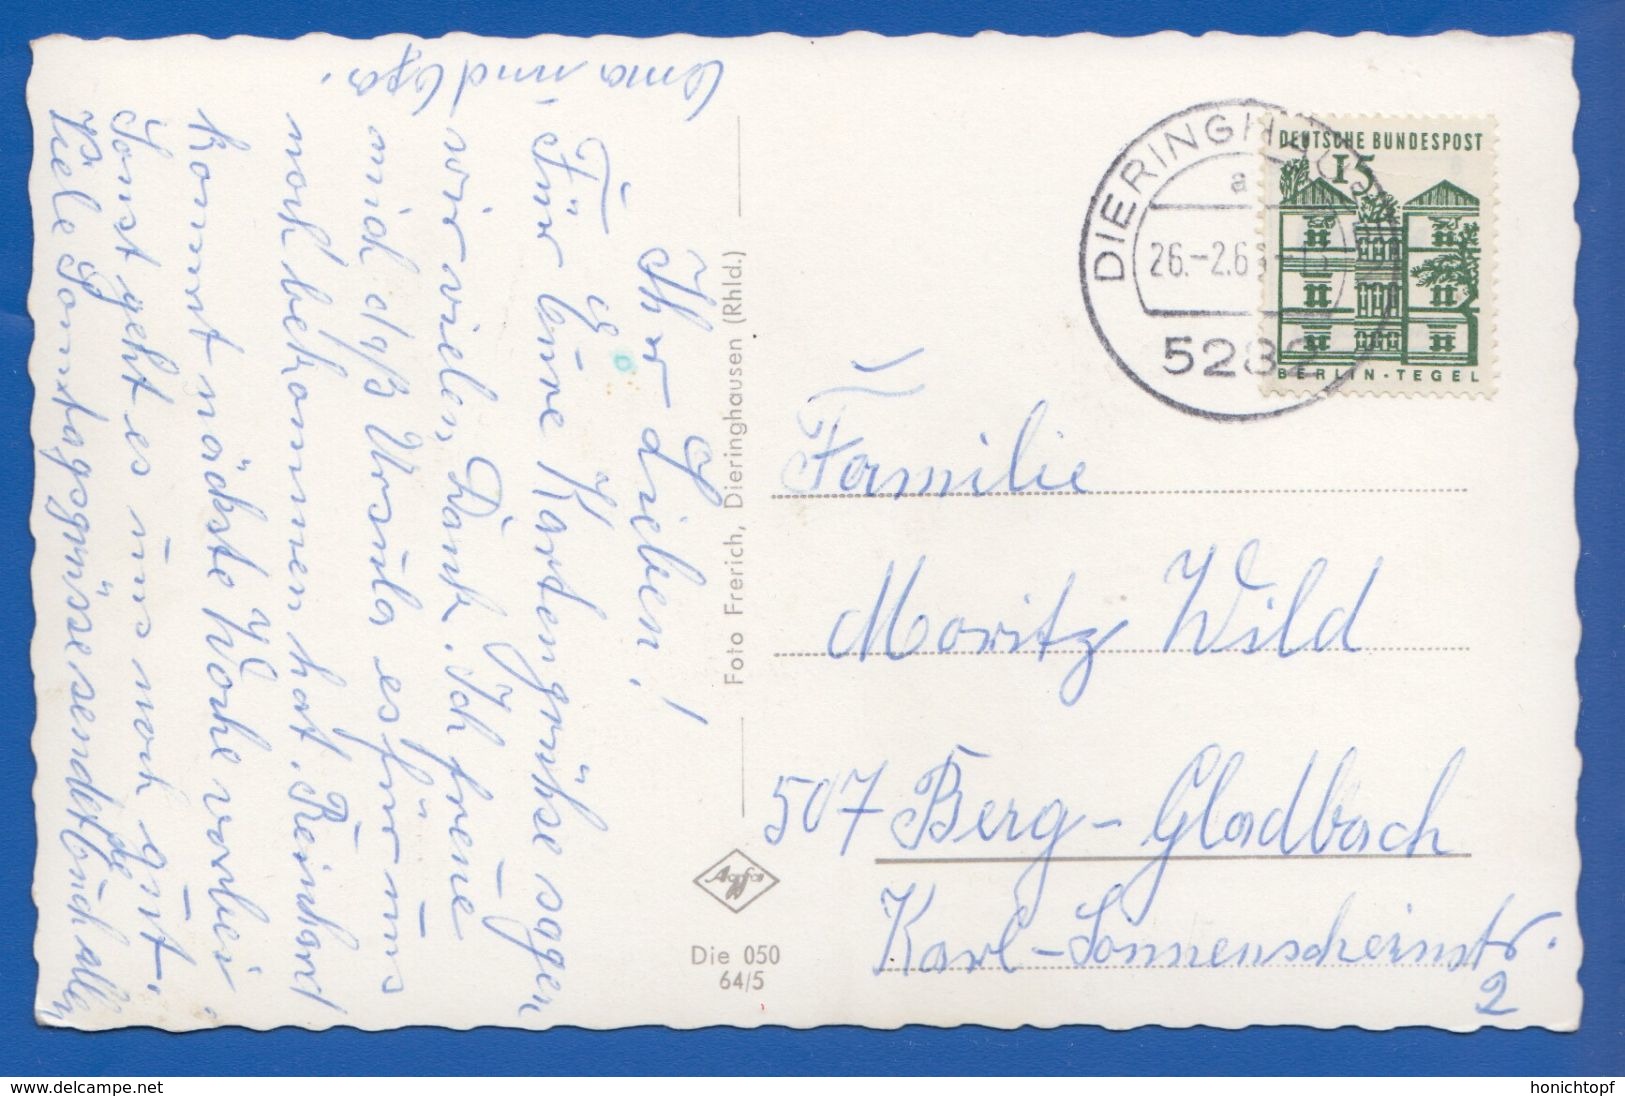 Ihr Lieben!
Für Eure Kartengrüße sagen
wir vielen Dank. Ich freue
mich daß Ursula es für uns
noch bekommen hat. Reinhard
kommt nächste Woche vorbei.
Sonst geht es uns noch gut.
Viele Sonntagsgrüsse sendet Euch allen
die
Oma und Opa.
Foto Frerich, Dieringhausen (Rhld.)
Agfa
Die 050
64/5
DIERINGHAUSEN
a
26.-2.6
5282
DEUTSCHE BUNDESPOST
15
BERLIN-TEGEL
Familie
Moritz Wild
507 Berg-Gladbach
Karl-Sonnenscheinstr.
2
www.delcampe.net
honichtopf